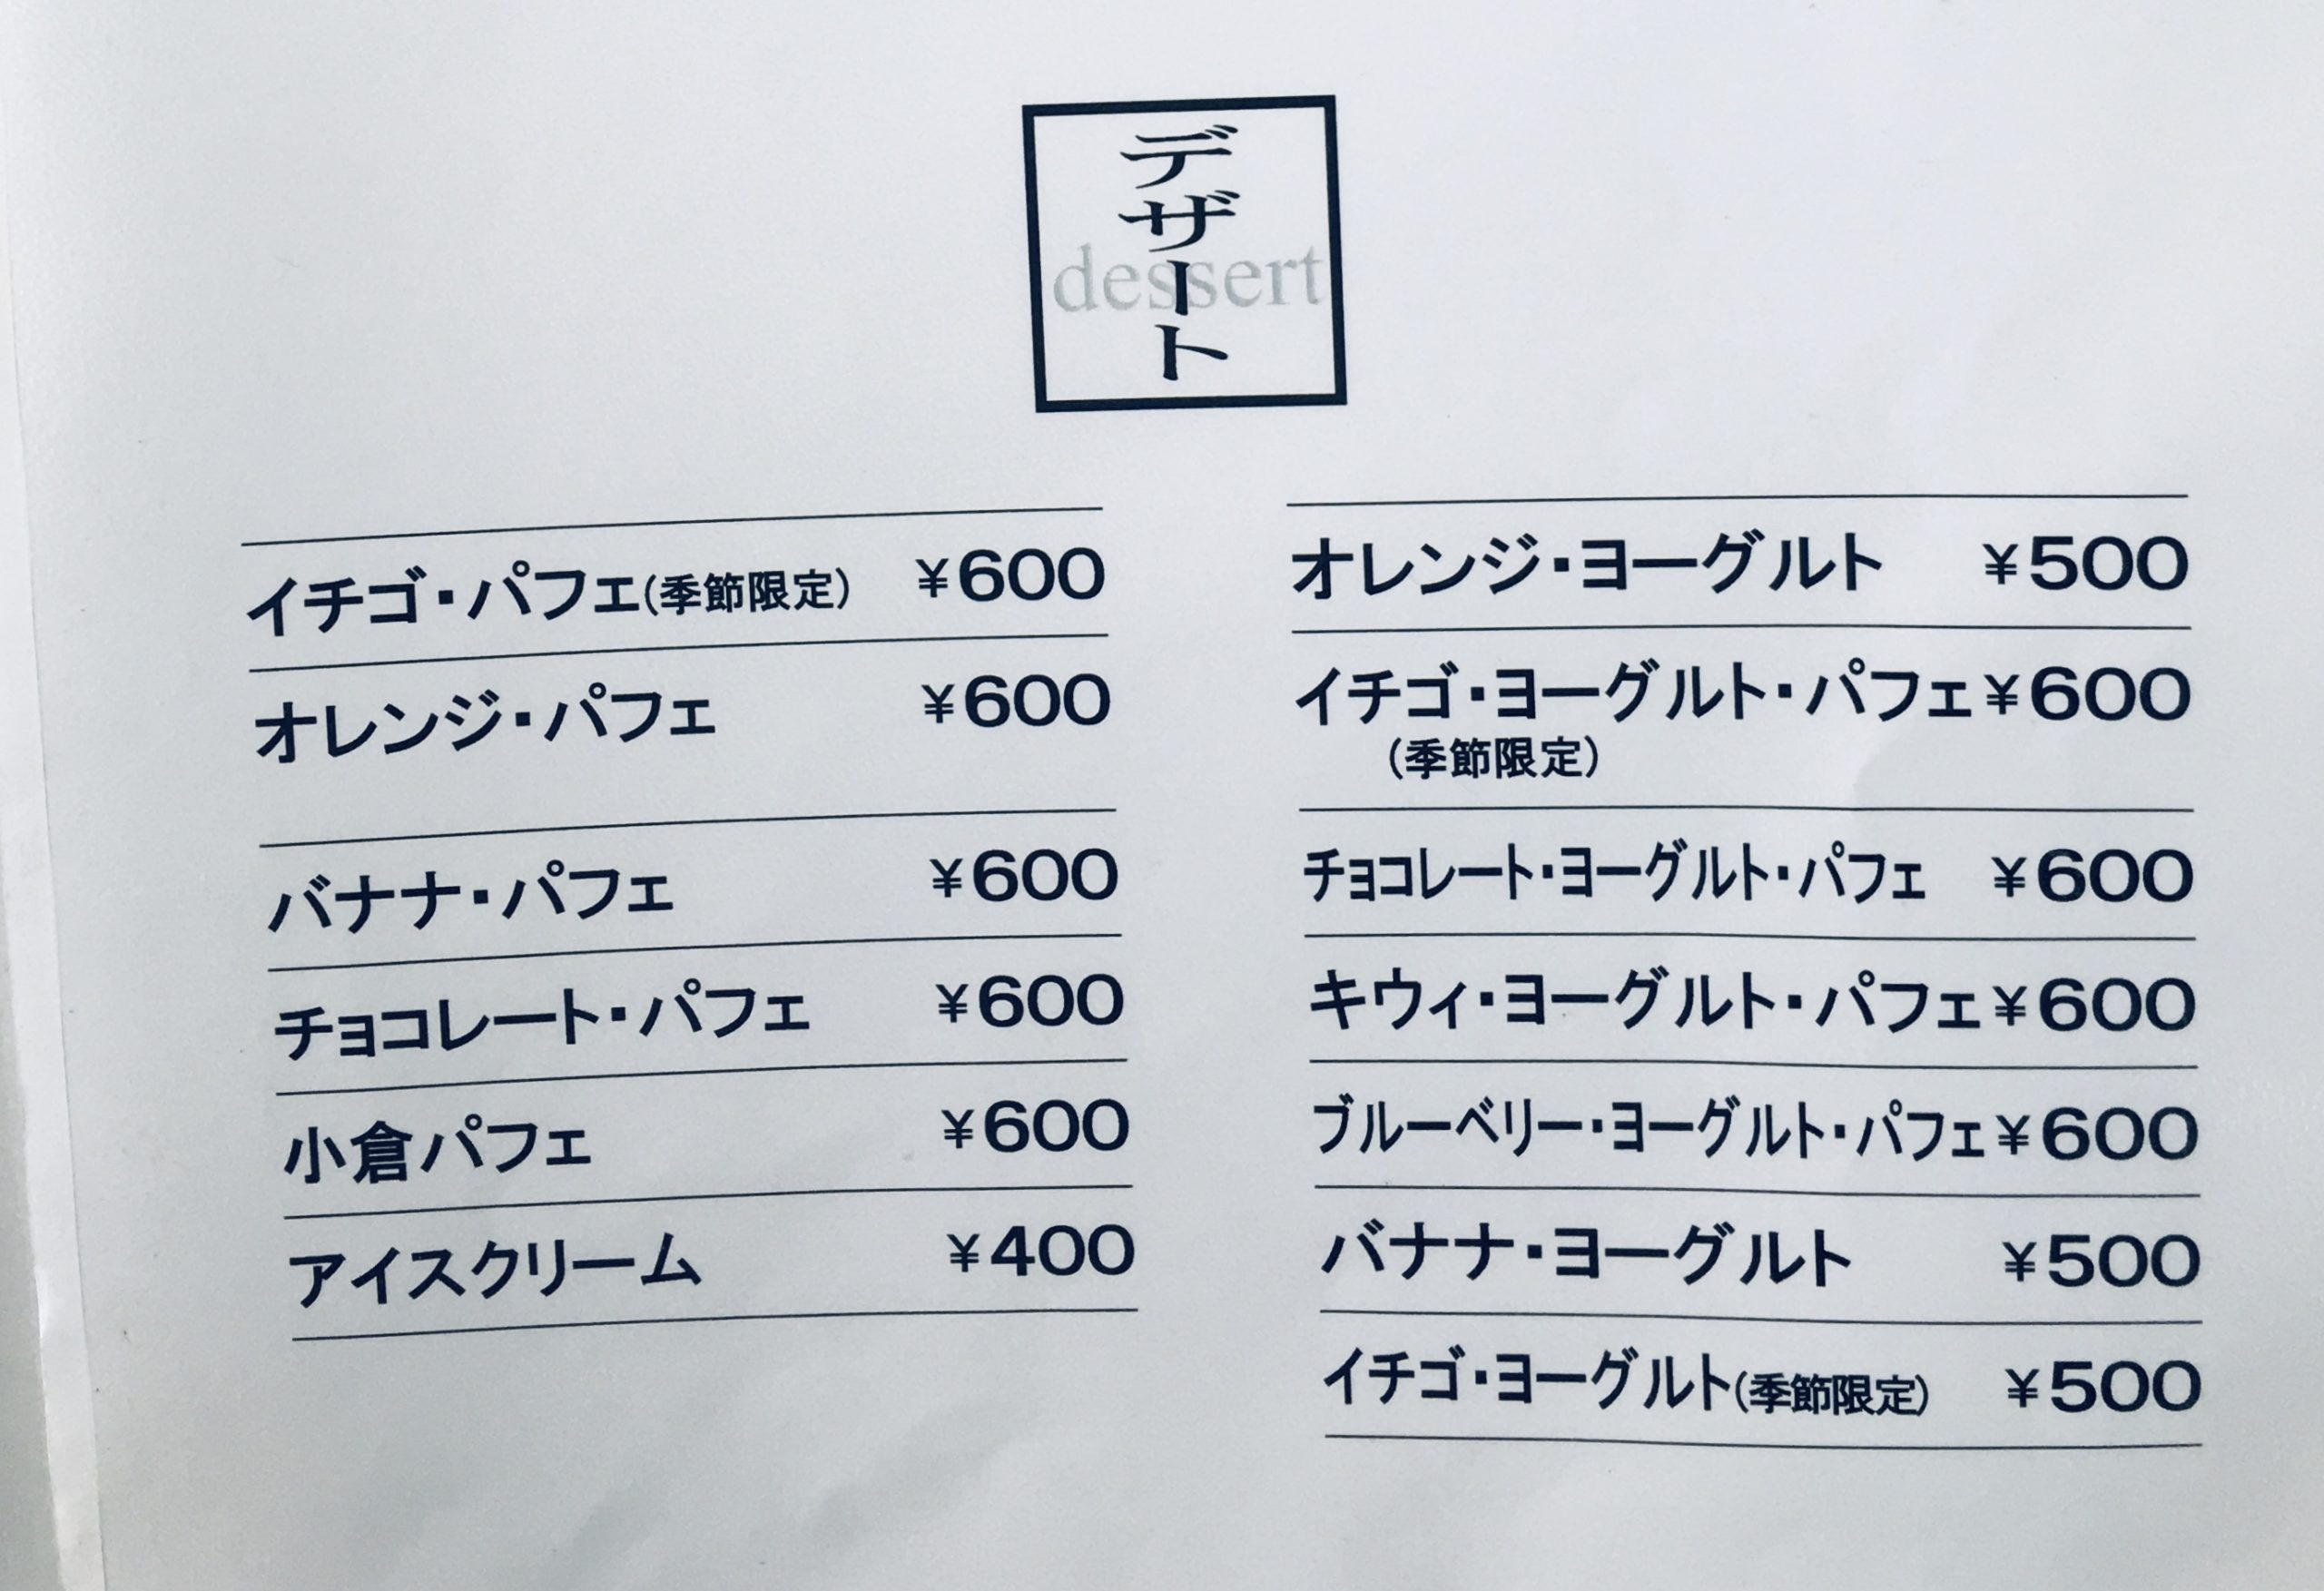 デザート
dessert
イチゴ・パフェ(季節限定) ¥600
オレンジ・パフェ ¥600
バナナ・パフェ ¥600
チョコレート・パフェ ¥600
小倉パフェ ¥600
アイスクリーム ¥400
オレンジ・ヨーグルト ¥500
イチゴ・ヨーグルト・パフェ ¥600
(季節限定)
チョコレート・ヨーグルト・パフェ ¥600
キウィ・ヨーグルト・パフェ ¥600
ブルーベリー・ヨーグルト・パフェ ¥600
バナナ・ヨーグルト ¥500
イチゴ・ヨーグルト(季節限定) ¥500